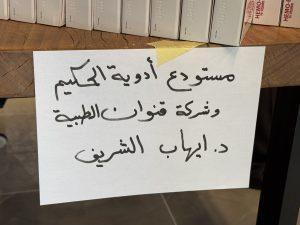 مستودع أدوية الحكيم
وشركة قنوان الطبية
د. ايهاب الشريف